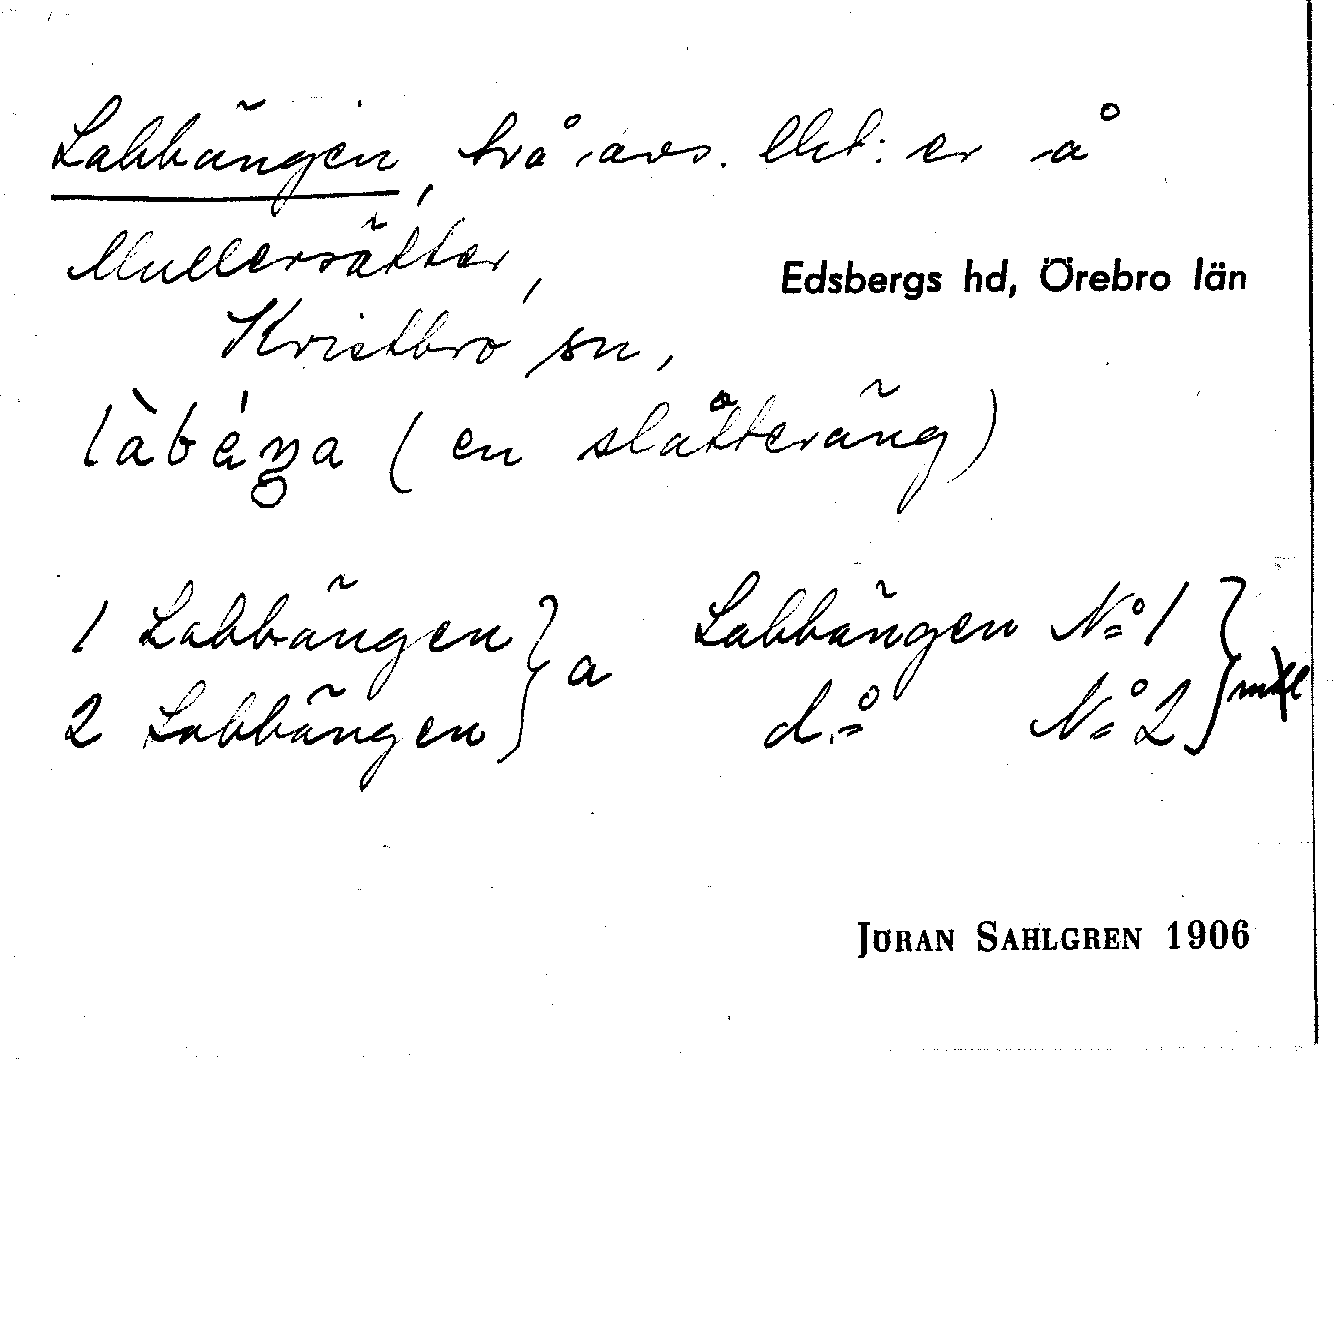 Labbängen, två avs. lht:er å
Mullersätter,
Edsbergs hd, Örebro län
Kvistbro sn,
(en slåtteräng)
1 Labbängen } a Labbängen No 1
2 Labbängen do No 2 }
JÖRAN SAHLGREN 1906